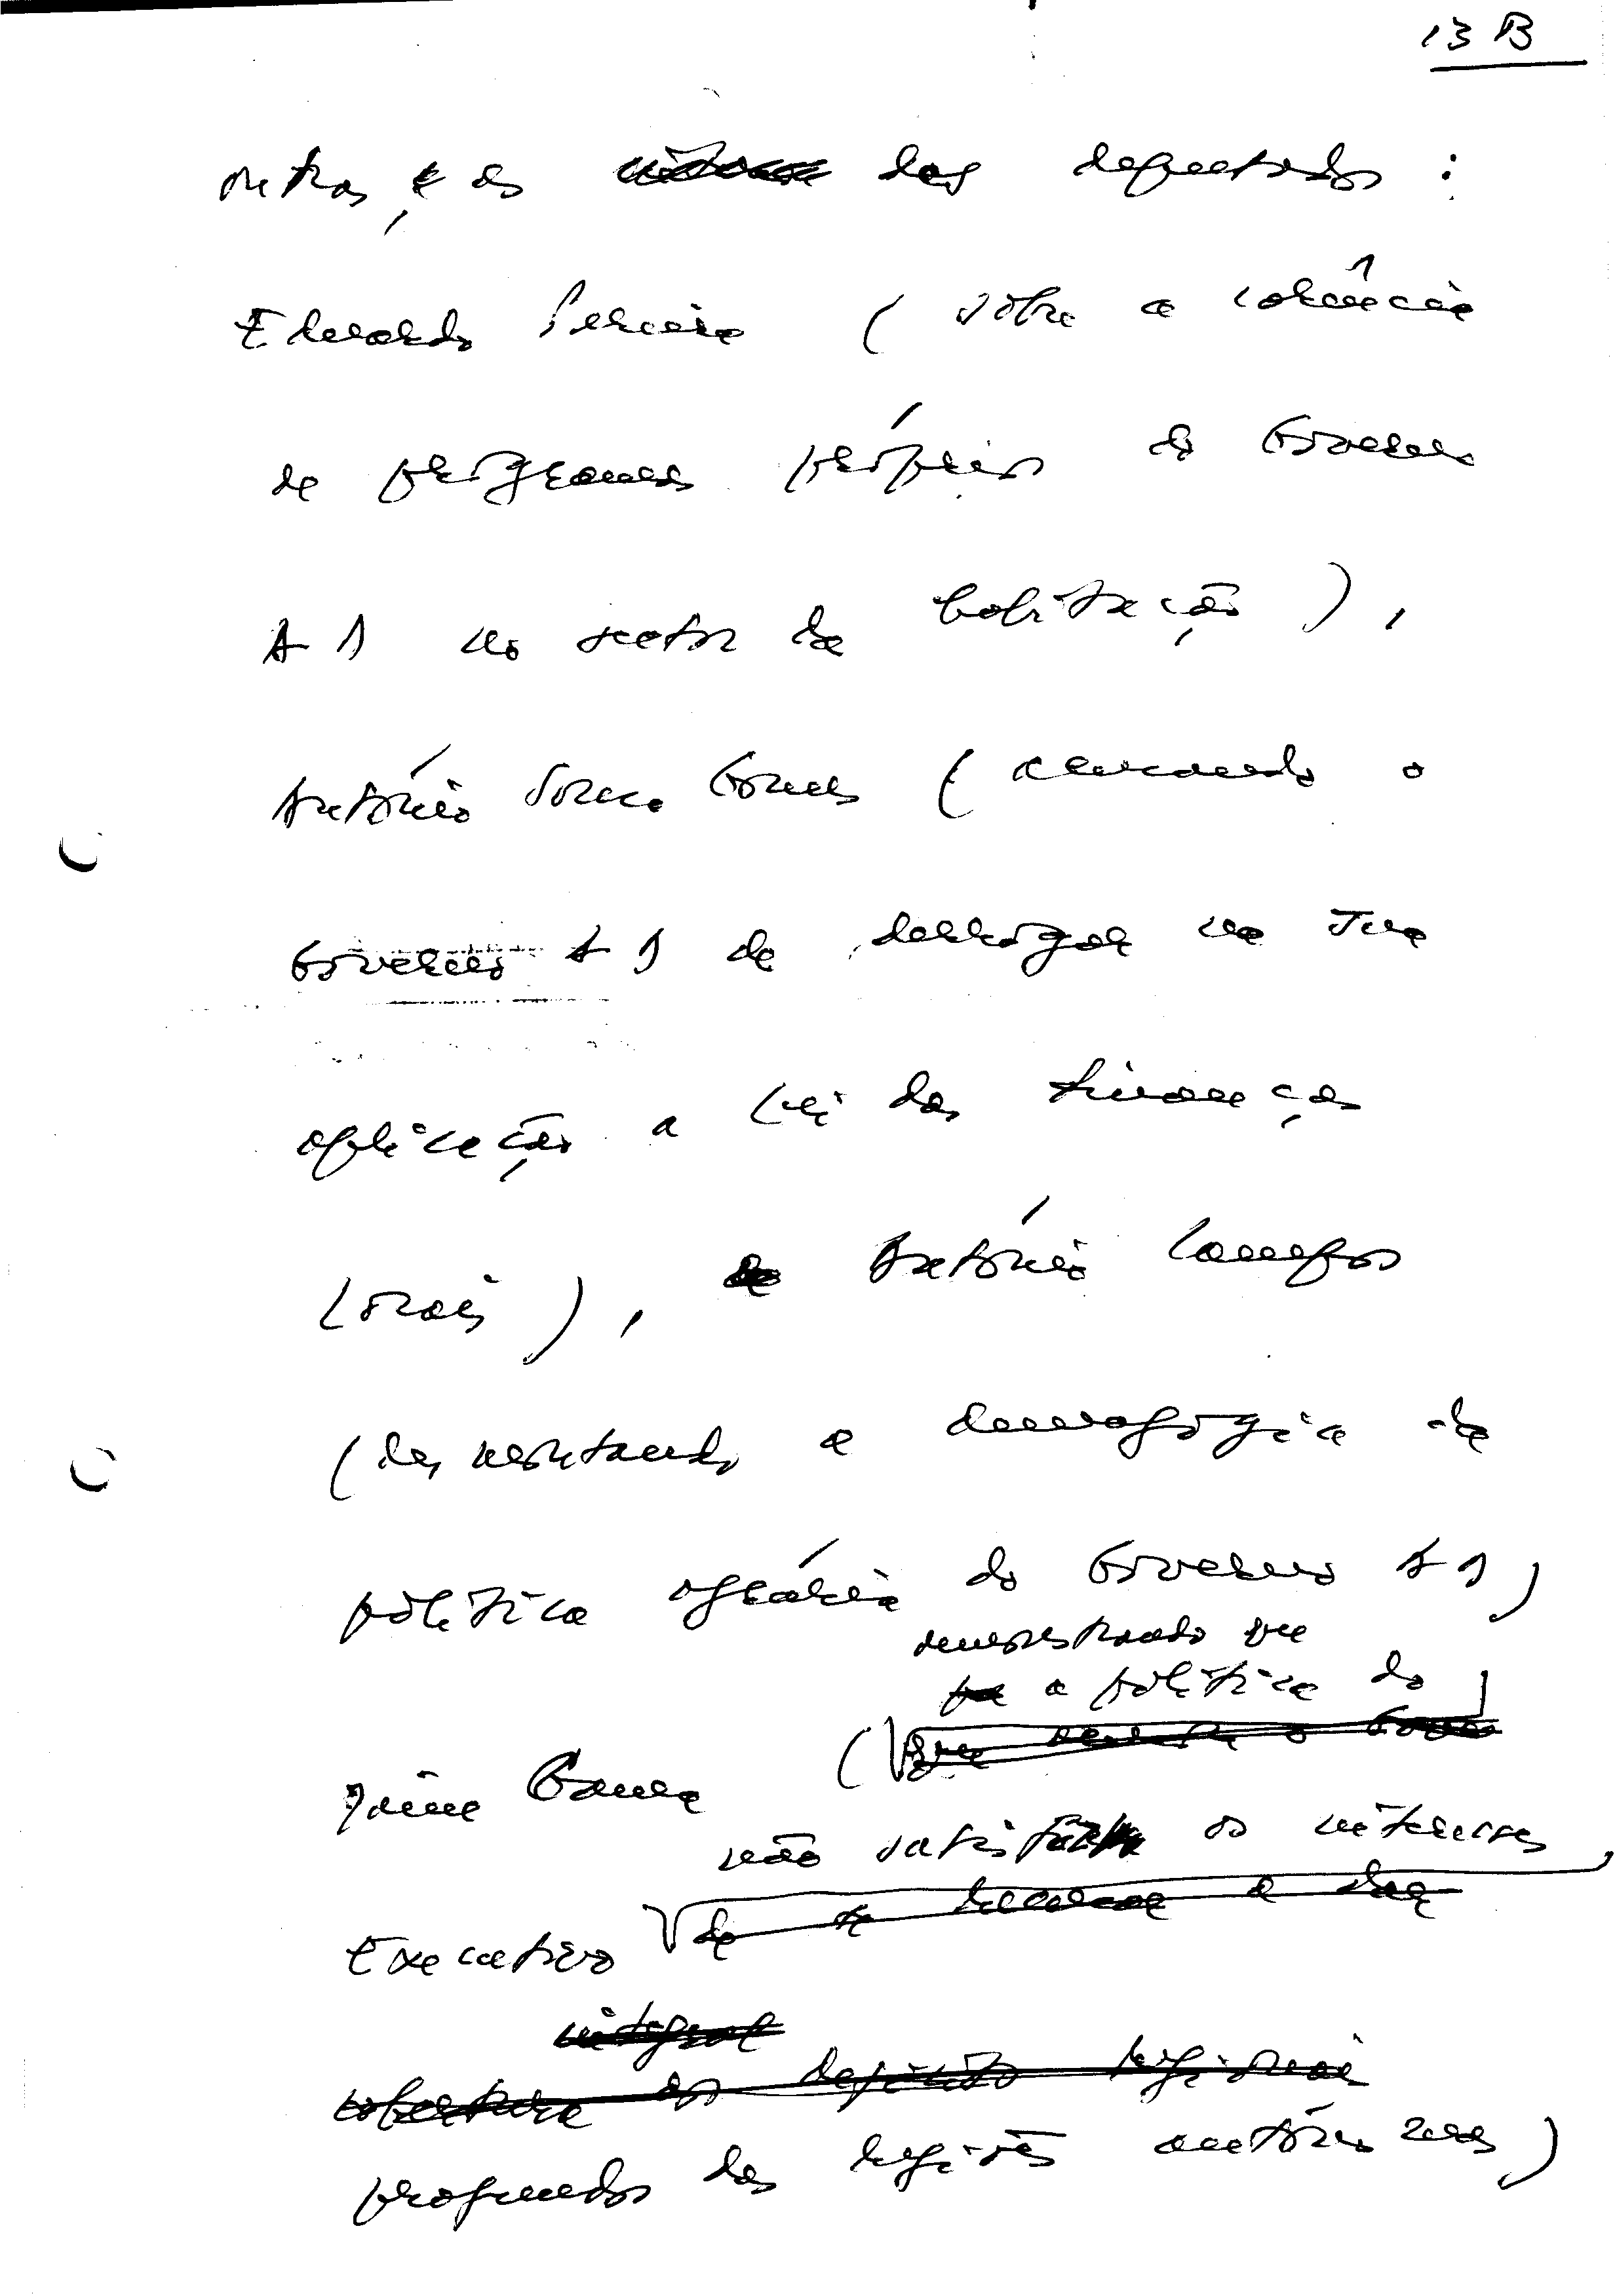 13 B
outras, e as dos deputados :
Eduardo Pereira ( sobre a
de programas próprios do Governo
AD no sector da habitação ) ,
António Sousa Gomes ( acusando o
Governo AD de derrogar na sua
aplicação a Lei das Finanças
Locais ) , António Campos
( desmontando a demagogia da
política agrária do Governo AD )
demonstrando que
a política do
Jaime Gama (
não os interesses
Executivo
integral
cobertura do regional
profundos das regiões autónomas )